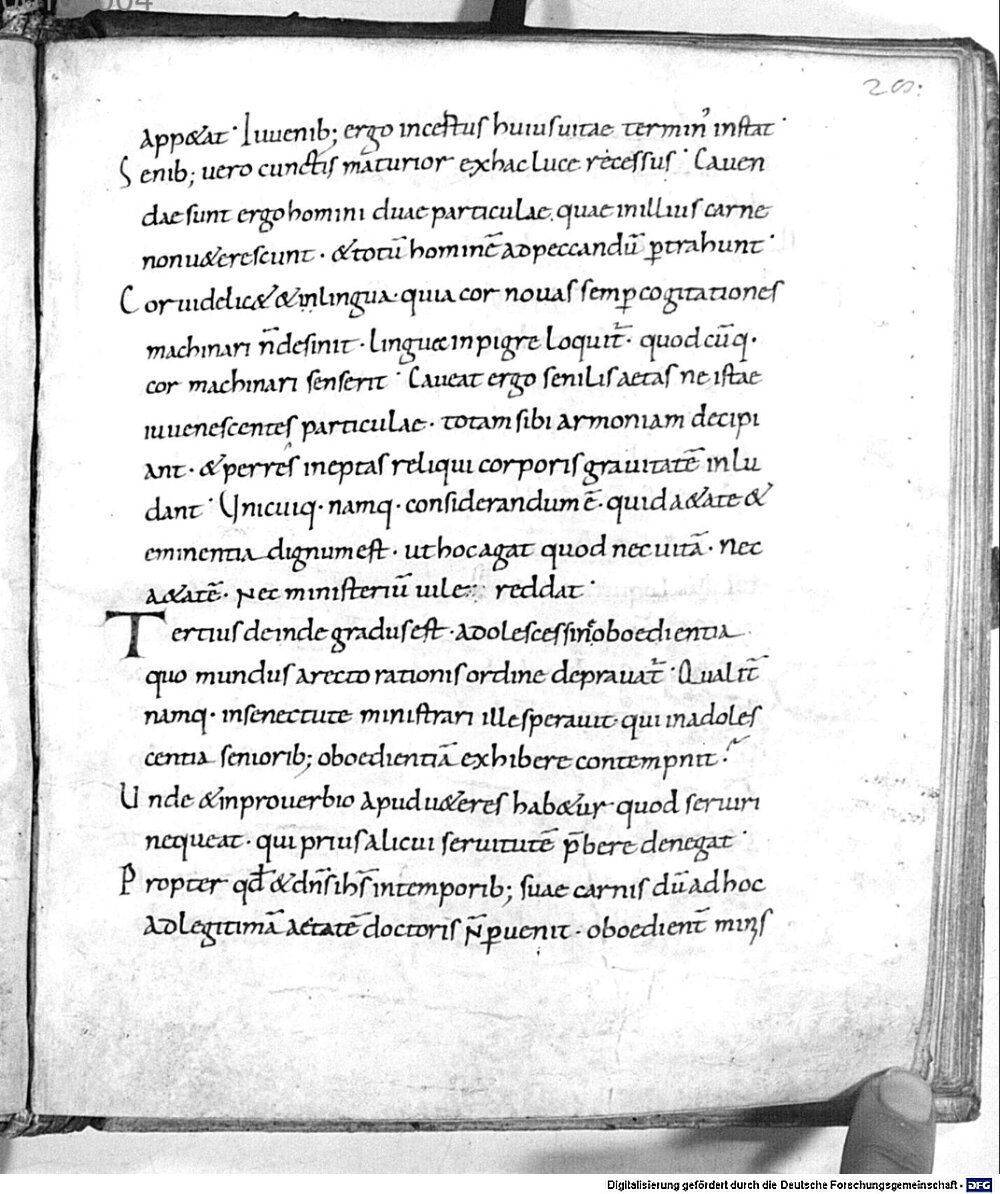 20:
app&at· Iuuenib; ergo incestus huius uitae termin' instat·
Senib; uero cunctis maturior ex hac luce recessus· Cauen
dae sunt ergo homini duae particulae. quae in illius carne
non u&erescunt· & totū hominē ad peccandū ꝑtrahunt·
Cor uidelic& & in lingua· quia cor nouas semꝑ cogitationes
machinari n̄ desinit· lingua inpigre loquit̄· quodcūq·
cor machinari senserit· Caueat ergo senilis aetas ne istae
iuuenescentes particulae· totam sibi armoniam decipi
ant· & per res ineptas reliqui corporis grauitatē inlu
dant· Unicuiq· namq· considerandum ē· quid a&ate &
eminentia dignum est· ut hoc agat quod nec uitā· nec
a&atē· nec ministeriū uile reddat·
Tertius deinde gradus est· adolescens sin oboedientia·
quo mundus a recto rationis ordine deprauat̄· Qualit̄
namq· in senectute ministrari ille sperauit· qui in adoles
centia seniorib; oboedientiā exhibere contempnit·
Unde & in prouerbio apud u&eres hab&ur quod seruiri
nequeat· qui prius alicui seruitutē p̄bere denegat·
Propter qd̄ & dn̄s ih̄s in temporib; suae carnis dū adhoc
ad legitimā aetatē doctoris n̄ ꝑuenit· oboedient̄ minis
Digitalisierung gefördert durch die Deutsche Forschungsgemeinschaft · DFG